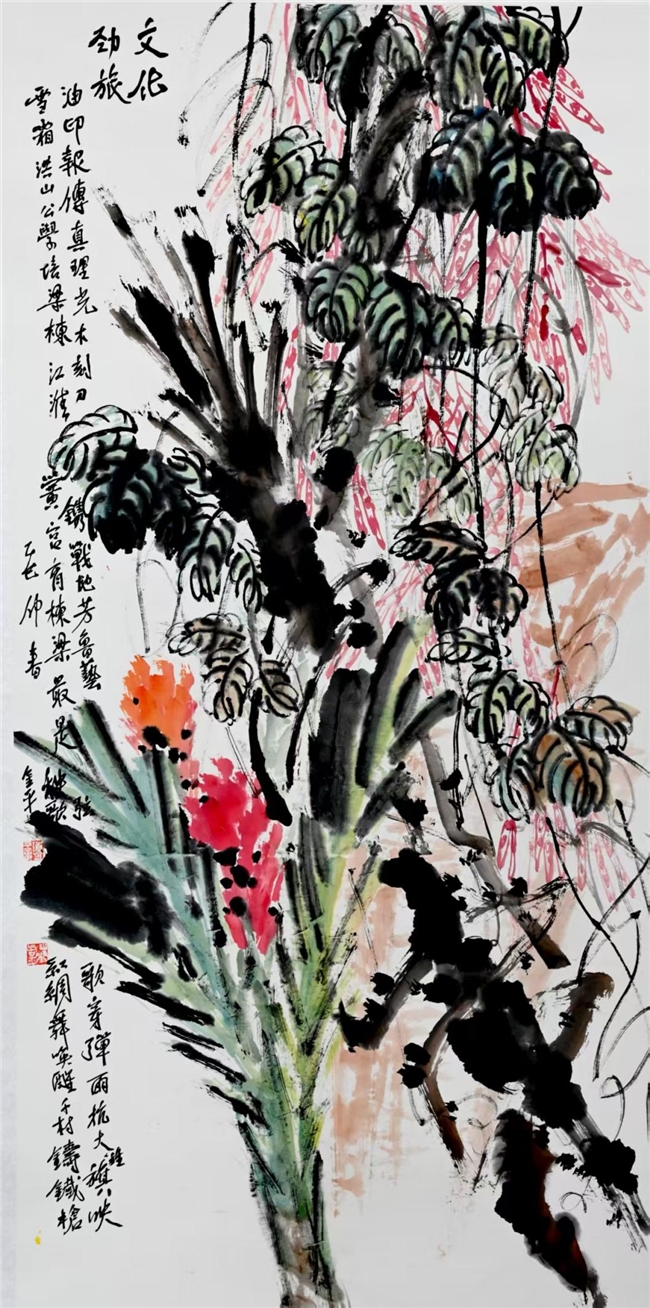 文化
劲旅
油印報傳真理光木刻刀
鐫戰地芳魯藝
弦
歌穿彈雨抗大雄旗映
雪霜洪山公學培梁棟江淮
黨宮育棟梁最是
秧歌
紅綢舞喚醒千村鑄鐵槍
乙巳仲春